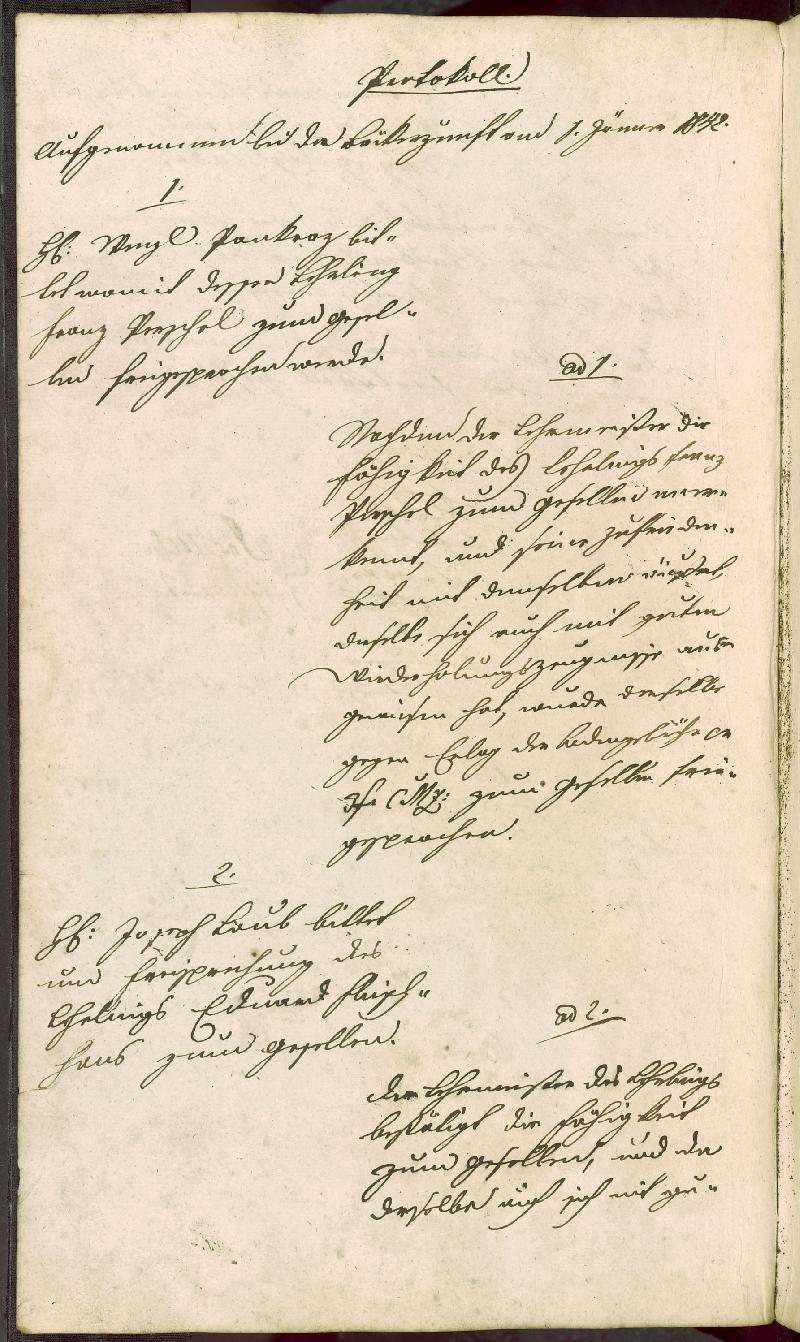 Protokoll.
Aufgenommen bei der Bäckerzunft am 1. Jänner 1842.
1.
H: Wenzl Pankraz bit-
tet womit dessen Lehrling
Franz Perschel zum Gesel-
len freigesprochen werde.
ad 1.
Nachdem der Lehrmeister die
Fähigkeit des Lehrlings Franz
Perschel zum Gesellen aner-
kennt, und seine Zufrieden-
heit mit demselben äußert,
derselbe sich auch mit guten
Wiederholungszeugnisse aus-
gewiesen hat, wurde derselbe
gegen Erlag der Ladengebühr
CMz: zum Gesellen frei-
gesprochen.
2.
H: Joseph Taub bittet
um Freisprechung des
Lehrlings Eduard Fleisch-
hans zum Gesellen.
ad 2.
Der Lehrmeister des Lehrlings
bestätigt die Fähigkeit
zum Gesellen, und da
derselbe auch sich mit gu-